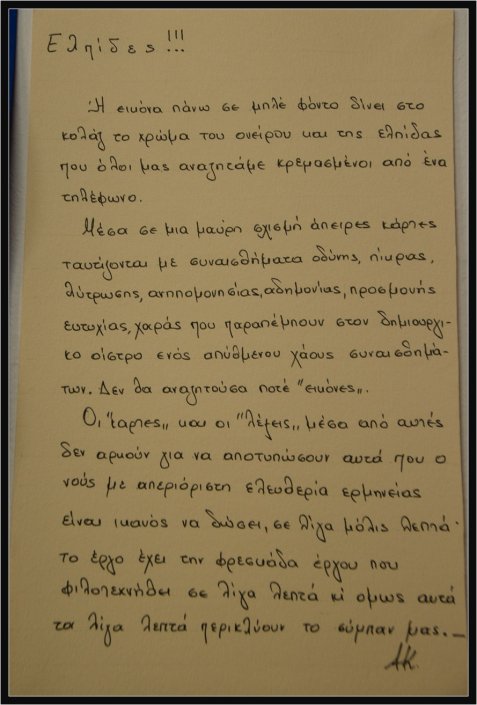 Ελπίδες!!!
Η εικόνα πάνω σε μπλέ φόντο δίνει στο
κολάζ το χρώμα του ονείρου και της ελπίδας
που όλοι μας αναζητάμε κρεμασμένοι από ένα
τηλέφωνο.
Μέσα σε μια μαύρη σχισμή άπειρες κάρτες
ταυτίζονται με συναισθήματα οδύνης, πίκρας,
λύτρωσης, ανηπομονησίας, αδημονίας, προσμονής
ευτυχίας, χαράς που παραπέμπουν στον δημιουργι-
κο οίστρο ενός απύθμενου χάους συναισθημά-
των. Δεν θα αναζητούσα ποτέ "εικόνες„.
Οι "κάρτες„ και οι "λέξεις„ μέσα από αυτές
δεν αρκούν για να αποτυπώσουν αυτά που ο
νούς με απεριόριστη ελευθερία ερμηνείας
είναι ικανός να δώσει, σε λίγα μόλις λεπτά·
το έργο έχει την φρεσκάδα έργου που
φιλοτεχνήθει σε λίγα λεπτά κι ομως αυτά
τα λίγα λεπτά περικλύουν το σύμπαν μας._
ΑΚ.